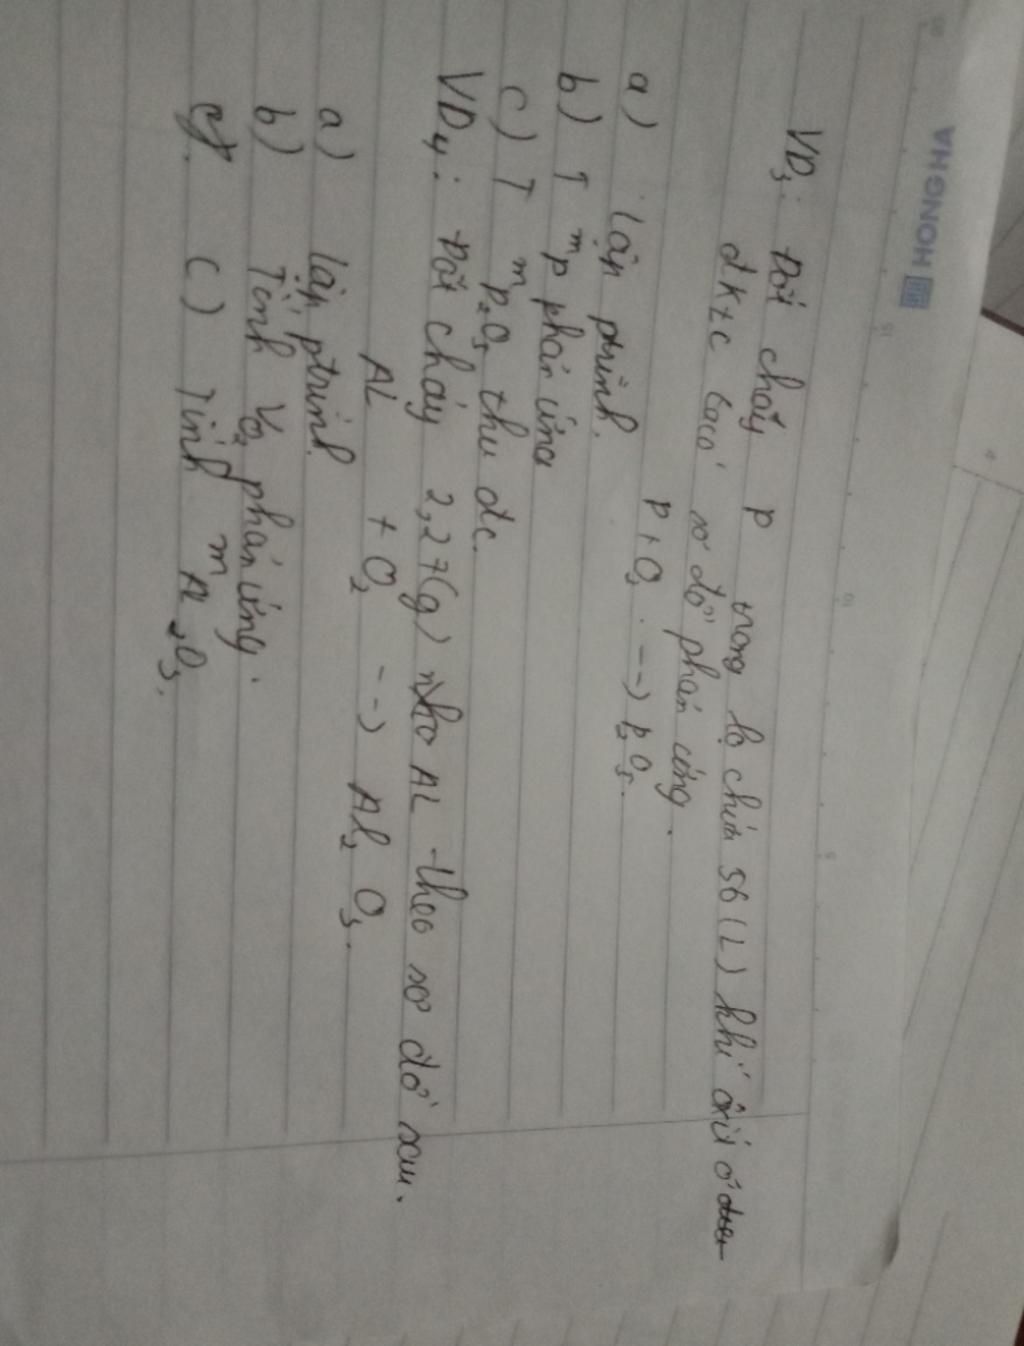 HONG HA
VD3: Đốt cháy P trong lọ chứa 56 (L) khí ôxi ở
đktc có sơ đồ phản ứng.
P + O2 --> P2O5.
a) Lập ptrình.
b) T mp phản ứng
c) T mp2O5 thu đc.
VD4: Đốt cháy 2,27(g) nhơ AL theo sơ đồ sau.
AL + O2 --> Al2O3.
a) lập ptrình
b) Tính VO2 phản ứng.
c) Tính m Al2O3.